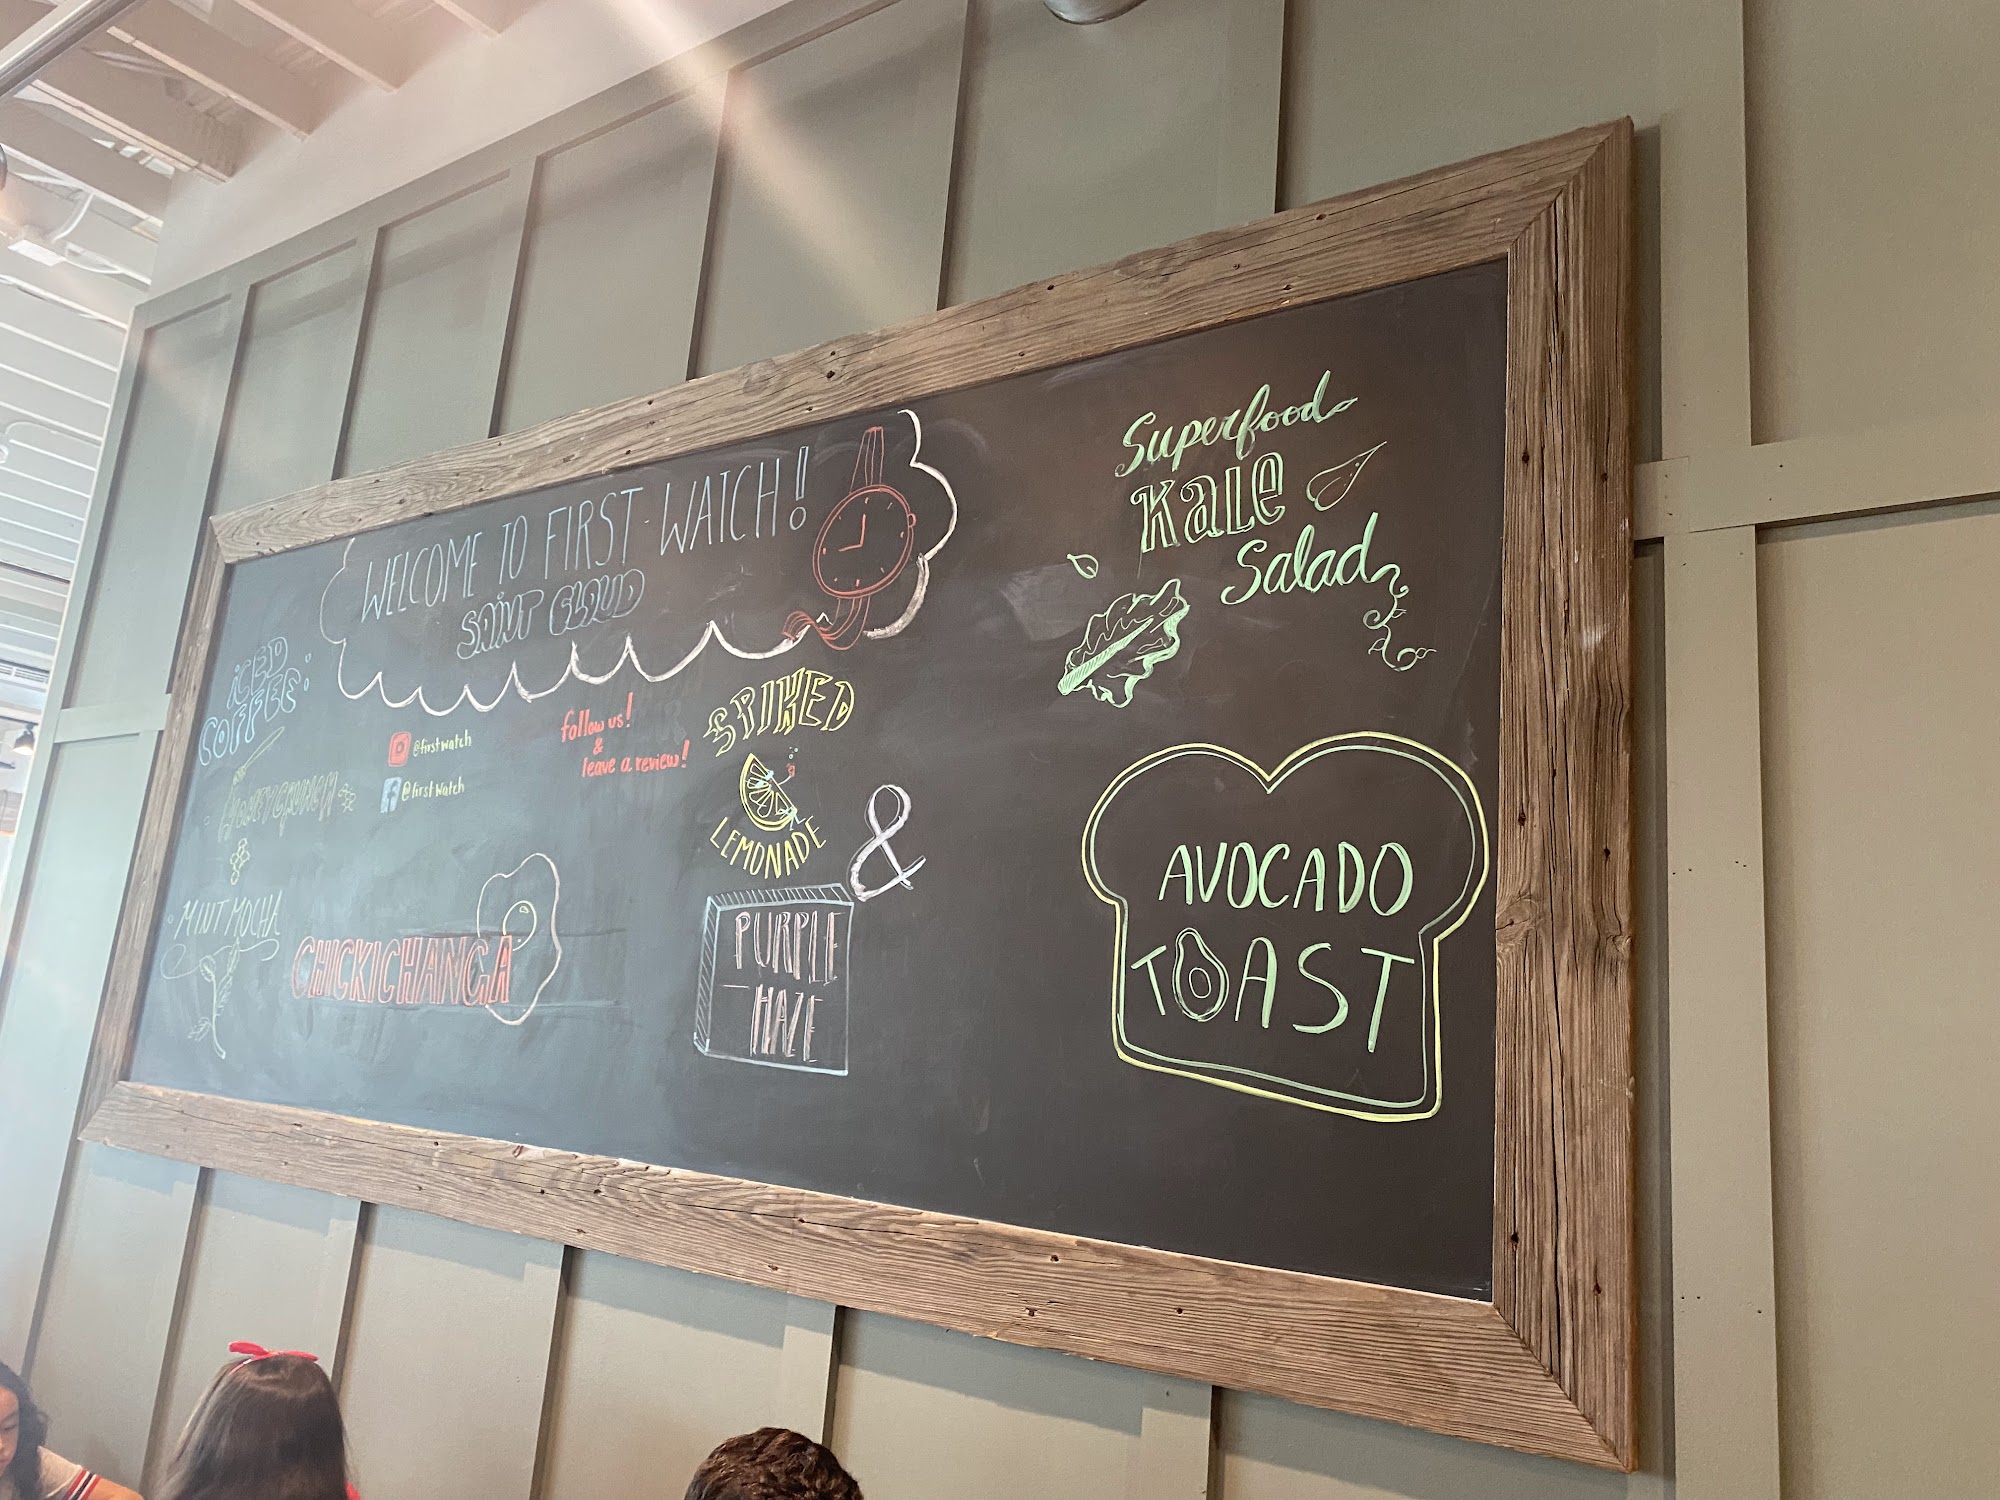 WELCOME TO FIRST WATCH!
SAINT CLOUD
ICED
COFFEE:
HONEY CRUNCH
MINT MOCHA
@firstwatch
@firstwatch
follow us!
&
leave a review!
CHICKICHANGA
SPIKED
LEMONADE
&
PURPLE
HAZE
Superfood
Kale
Salad
AVOCADO
TOAST